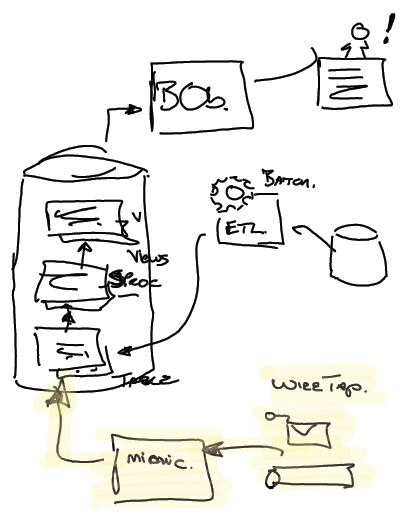 BOb.
!
BATCH.
ETL.
V
VIEWS
SPROC
TABLE
WIRE TAP.
MIMIC.